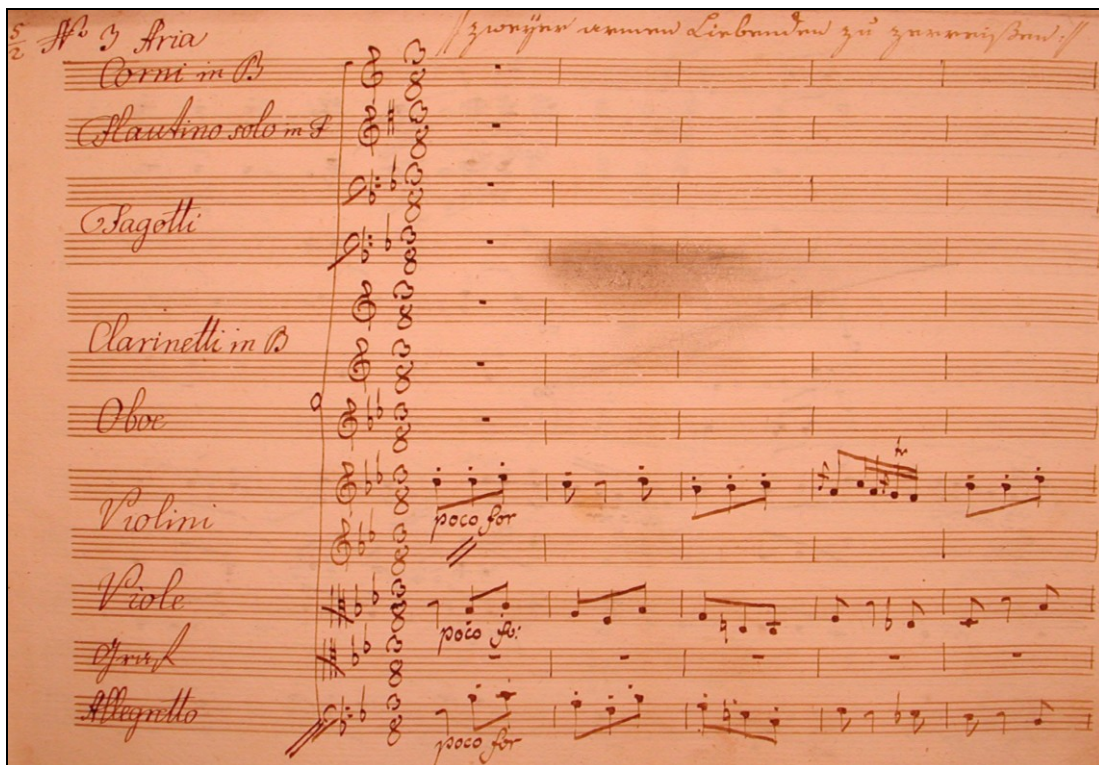 5/2 No. 3 Aria
//zweyer armen Liebenden zu zerreißen.//
Corni in B
Flautino solo in F
Fagotti
Clarinetti in B
Oboe
tr
Violini
poco for
Viole
poco fo:
Graf
Allegretto
poco for